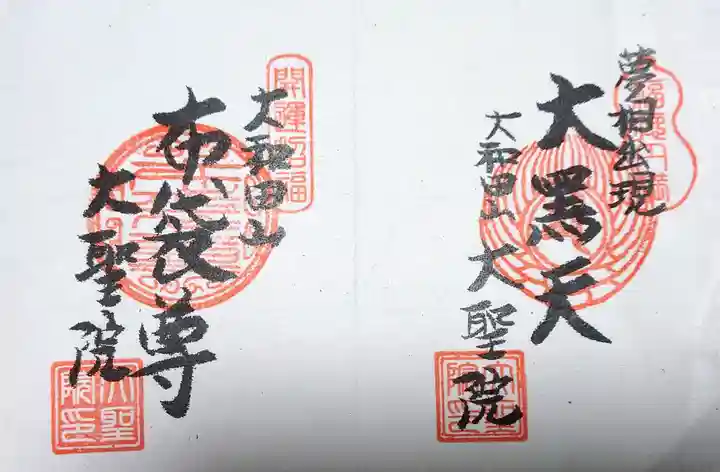 夢相出現
大黒天
大和田山
大聖院
開運招福
大和田山
布袋尊
大聖院
大聖院印